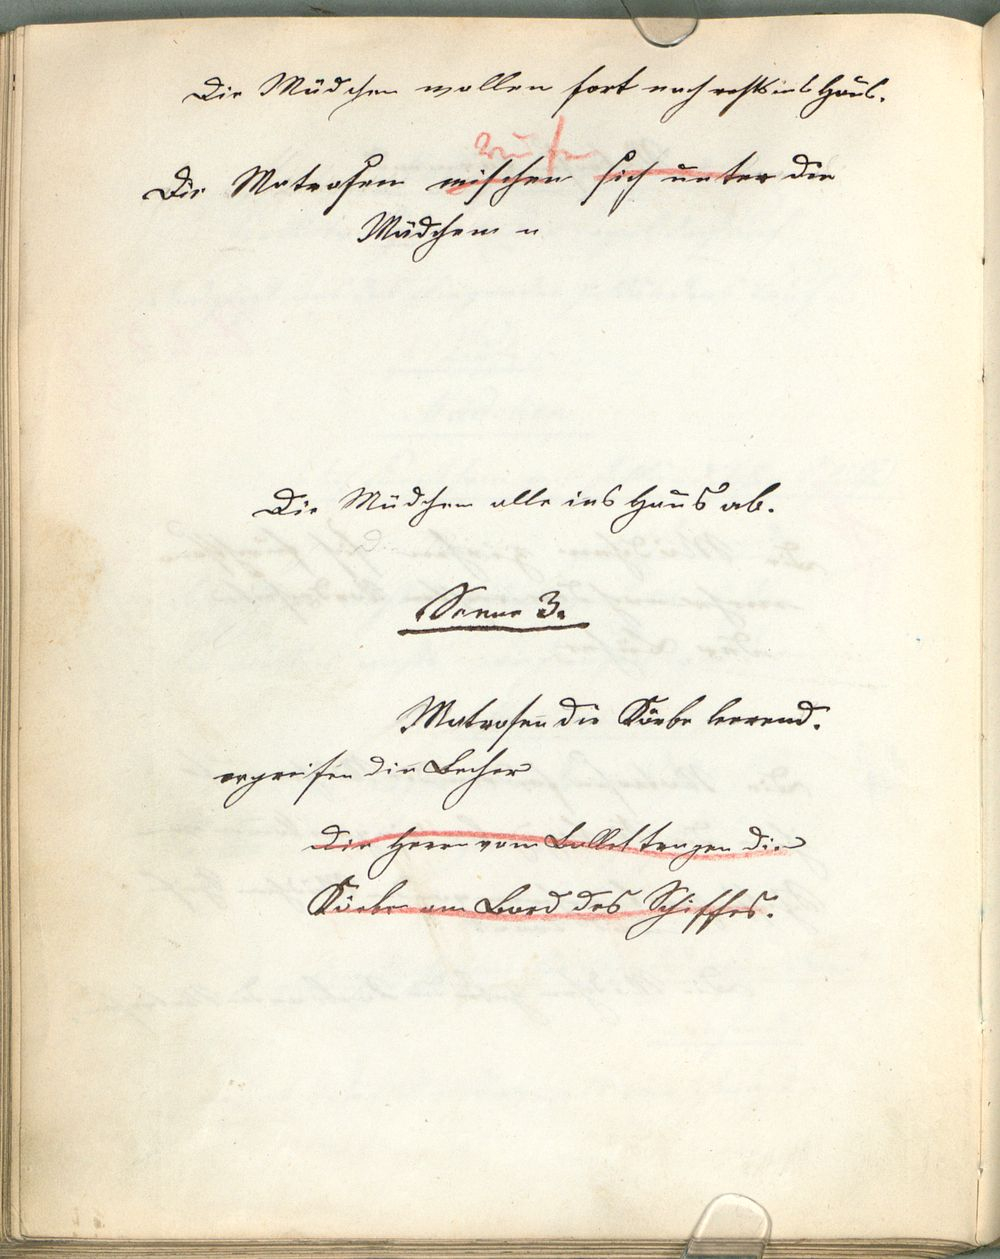 Die Mädchen wollen fort nach rechts ins Haus.
rufen
Die Matrosen mischen sich unter die
Mädchen u
Die Mädchen alle ins Haus ab.
Scene 3.
Matrosen die Körbe leerend.
ergreifen die Becher
Die Herrn vom Ballet tragen die
Körbe am Bord des Schiffes.